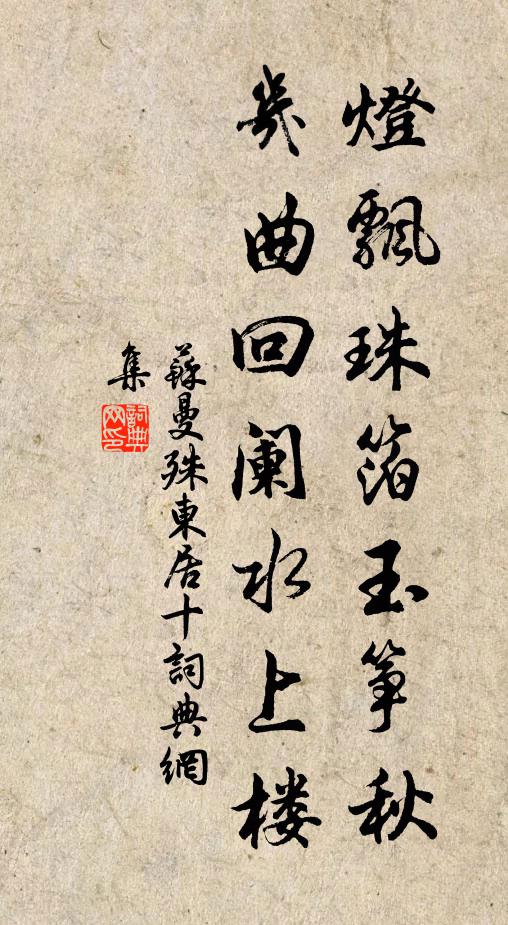 燈飄珠箔玉筝秋
幾曲回阑水上楼
蘇曼殊東居十詞典網
集
詞典
网印